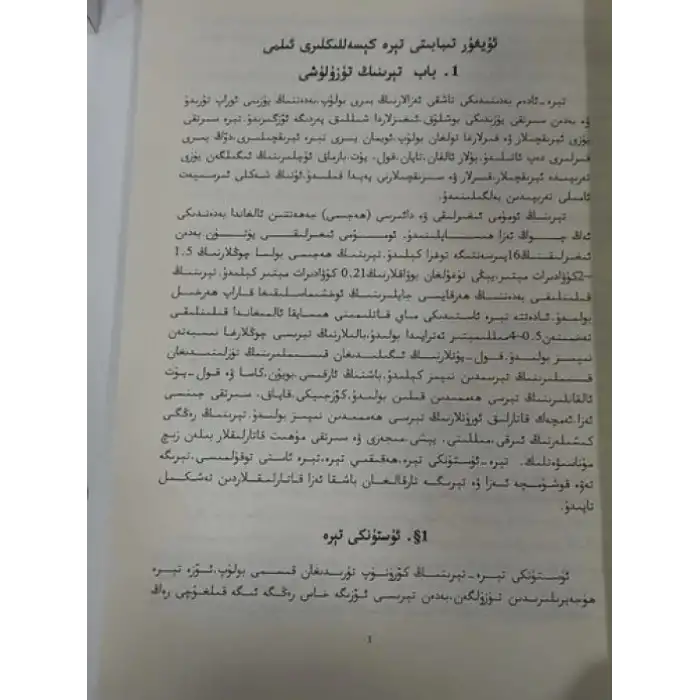 ئۇيغۇر تىبابىتى تېرە كېسەللىكلىرى ئىلمى
1. باب تېرىنىڭ تۈزۈلۈشى
تېرە–ئادەم بەدىنىدىكى تاشقى ئەزالارنىڭ بىرى بولۇپ،بەدەننىڭ يۈزىنى ئوراپ تۇرىدۇ
ۋە بەدەن سىرتقى يۈزىدىكى بوشلۇق،ئىغىزلارغا شىللىق پەردىگە ئۆزگىرىدۇ.تېرە سىرتقى
يۈزى ئېرىقچىلار ۋە قىرلارغا تولغان بولۇپ،ئويمان يىرى تېرە ئېرىقچىلىرى،دۆڭ يىرى
قىرلىرى دەپ ئاتىلىدۇ.بۇلار ئالقان،تاپان،قول، پۇت،بارماق ئۇچلىرىنىڭ ئىگىلگەن يۈزى
تەرىپىدە ئېرىقچىلار،قىرلار ۋە سىزىقچىلارنى پەيدا قىلىدۇ.ئۇنىڭ شەكلى ئىرسىيەت
ئامىلى تەرىپىدىن بەلگىلىنىدۇ.
تېرىنىڭ ئومۇمى ئىغىرلىقى ۋە دائىرىسى (ھەجىمى) جەھەتتىن ئالغاندا بەدەندىكى
ئەڭ چوڭ ئەزا ھېساپلىنىدۇ. ئومۇمى ئىغىرلىقى پۈتۈن بەدەن
ئىغىرلىقنىڭ16پىرسەنتىگە توغرا كېلىدۇ.تېرىنىڭ ھەجىمى بولسا چوڭلارنىڭ 1.5
–2كۇۋادىرات مېتىر،يېڭى تۇغۇلغان بوۋاقلارنىڭ0.21 كۇۋادىرات مېتىر كېلىدۇ.تېرىنىڭ
قىلىنلىقى بەدەننىڭ ھەرقايسى جايلىرىنىڭ ئوخشىماسلىقىغا قاراپ ھەرخىل
بولىدۇ.ئادەتتە تېرە ئاستىدىكى ماي قاتلىمىنى ھىساپقا ئالمىغاندا قىلىنلىقى
تەخمىنەن0.5–4مىللىمېتىر ئەتراپىدا بولىدۇ،بالىلارنىڭ تېرىسى چوڭلارغا نىسبەتەن
نىپىز بولىدۇ.قول–پۇتلارنىڭ ئىگىلىدىغان قىسىملىرىنىڭ تۈزلىنىدىغان
قىسىملىرىنىڭ تېرىسىدىن نىپىز كېلىدۇ.باشنىڭ ئارقىسى،بويۇن،كاسا ۋە قول–پۇت
ئالقانلىرىنىڭ تېرىسى ھەممىدىن قىلىن بولىدۇ.كۆزجىيىكى،قاپاق، سىرتقى جىنسى
ئەزا،ئەمچەك قاتارلىق ئورۇنلارنىڭ تېرىسى ھەممىدىن نىپىز بولىدۇ.تېرىنىڭ رەڭگى
كىشىلەرنىڭ ئىرقى،مىللىتى، يېشى،مىجەزى ۋە سىرتقى مۇھىت قاتارلىقلار بىلەن زىچ
مۇناسىۋەتلىك. تېرە–ئۈستۈنكى تېرە،ھەقىقىي تېرە،تېرە ئاستى توقۇلمىسى،تېرىگە
تەۋە قوشۇمچە ئەزا ۋە تېرىگە تارقالغان باشقا ئەزا قاتارلىقلاردىن تەشكىل
تاپىدۇ.
§1. ئۈستۈنكى تېرە
ئۈستۈنكى تېرە–تېرىنىڭ كۆرۈنۈپ تۇرىدىغان قىسمى بولۇپ،ئۆزە تېرە
ھۈجەيرىلىرىدىن تۈزۈلگەن،بەدەن تېرىسى ئۆزىگە خاس رەڭگە ئىگە قىلغۇچى رەڭ
1